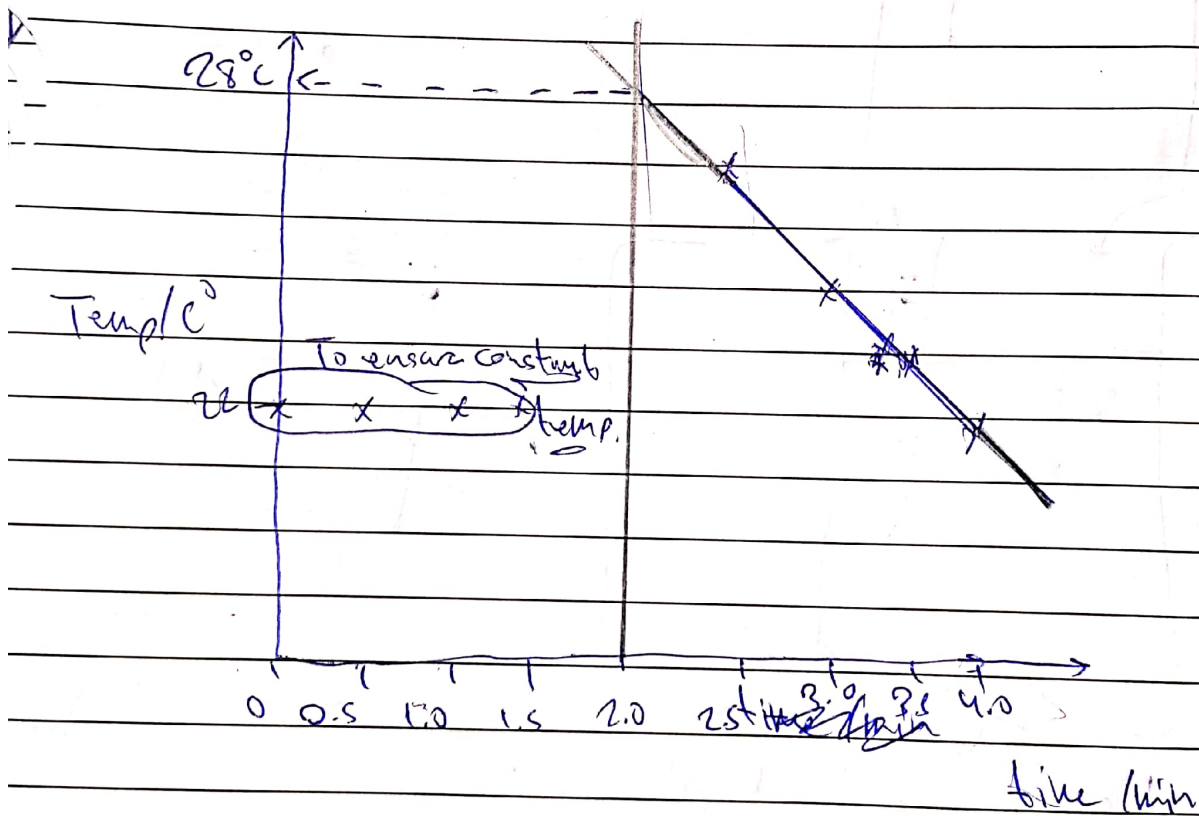 28°C
Temp/C°
To ensure constant
22
temp.
0 0.5 1.0 1.5 2.0 2.5 3.0 3.5 4.0
time/min
time/min